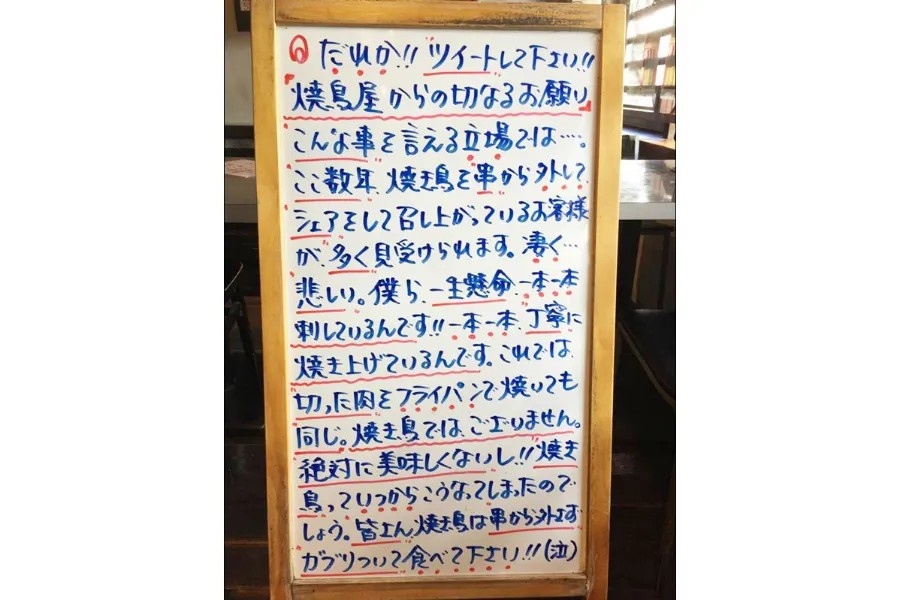 だれか!!ツイートして下さい!!
焼鳥屋からの切なるお願い
こんな事を言える立場では…。
ここ数年、焼き鳥を串から外して、
シェアをして召し上がっているお客様
が、多く見受けられます。凄く…
悲しい。僕ら、一生懸命、一本一本
刺しているんです!!一本一本、丁寧に
焼き上げているんです。これでは、
切った肉をフライパンで焼いても
同じ。焼き鳥では、ございません。
絶対に美味しくないし!!焼き
鳥っていつからこうなってしまったので
しょう。皆さん、焼き鳥は串から外さず
ガブリついて食べて下さい!!(泣)